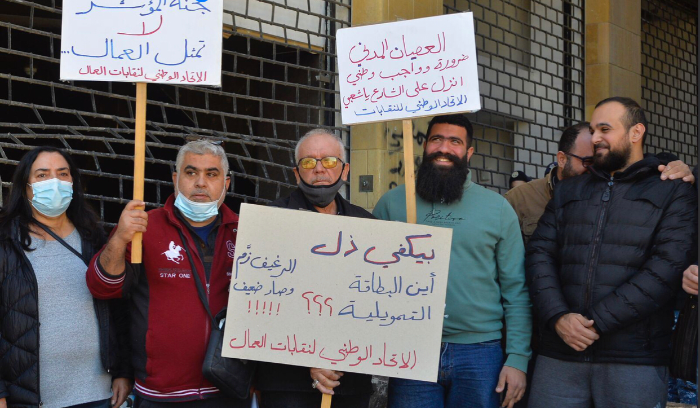 لجنة المؤشر
لا
تمثل العمال...
الاتحاد الوطني لنقابات العمال
العصيان المدني
ضرورة وواجب وطني
انزل على الشارع يا شعبي
الاتحاد الوطني للنقابات
بيكفي ذل
أين البطاقة
التمويلية ؟؟؟
الرغيف زمّ
وصار ضعيف
!!!!!
الاتحاد الوطني لنقابات العمال
STAR ONE